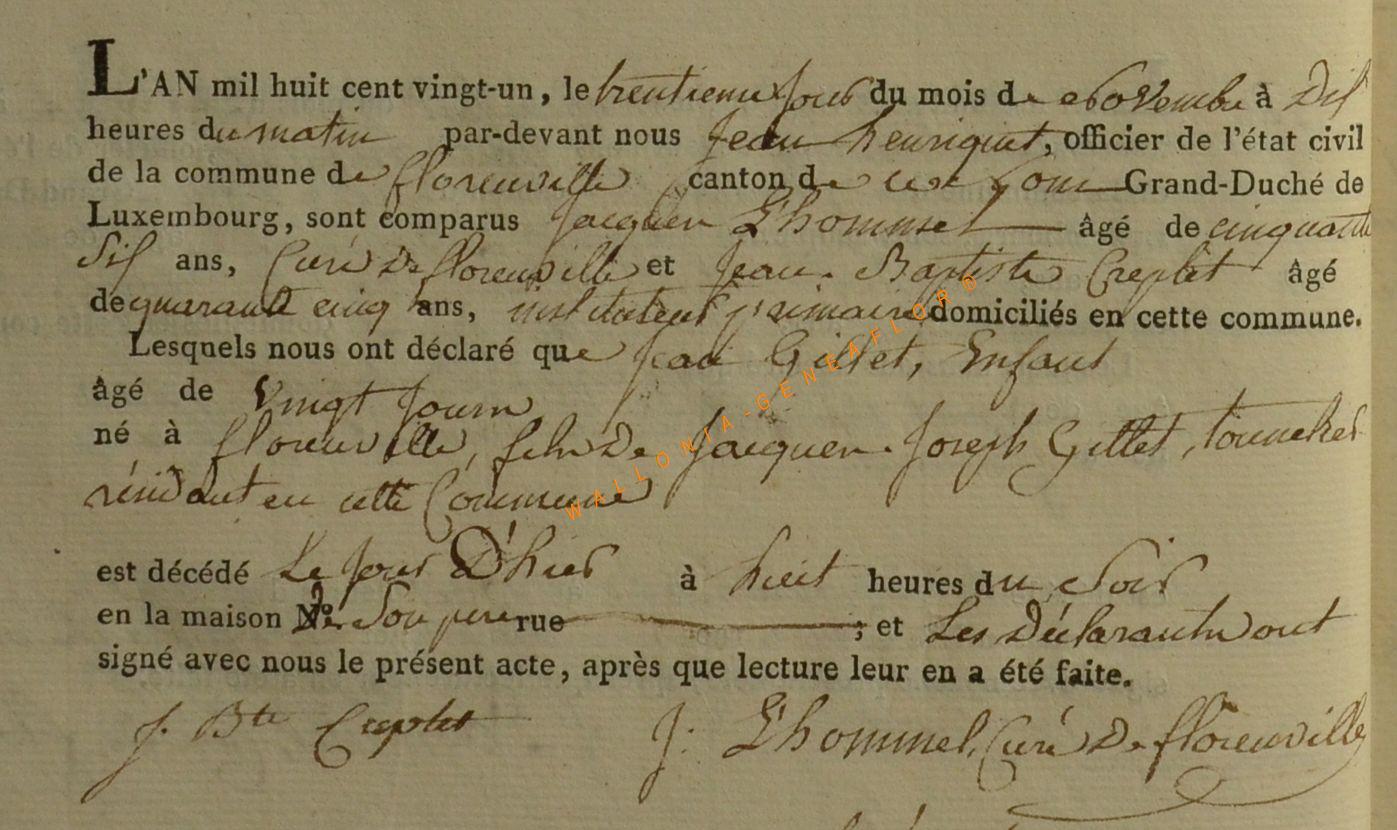 L'AN mil huit cent vingt-un, le trentieme Jour du mois de Novembre à Dix
heures du matin par-devant nous Jean henriquet, officier de l'état civil
de la commune de florenville canton de Grand-Duché de
Luxembourg, sont comparus Jacques L'hommel âgé de cinquante
Six ans, Curé De florenville et Jean-Baptiste Creplet âgé
de quarante cinq ans, instituteur primaire domiciliés en cette commune.
Lesquels nous ont déclaré que Jean Gillet, Enfant
âgé de vingt Jours
né à florenville, fils De Jacques-Joseph Gillet,
résidant en cette Commune
est décédé Le Jour D'hier à huit heures du Soir
en la maison De Son pere rue ; et Les Déclarants ont
signé avec nous le présent acte, après que lecture leur en a été faite.
J. Bte Creplet J. L'hommel, Curé De florenville
WALLONIA-GENEAFLORO